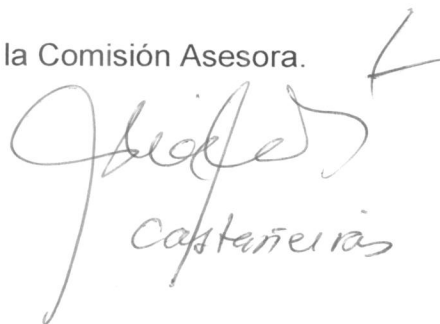 la Comisión Asesora.
Castañeiras